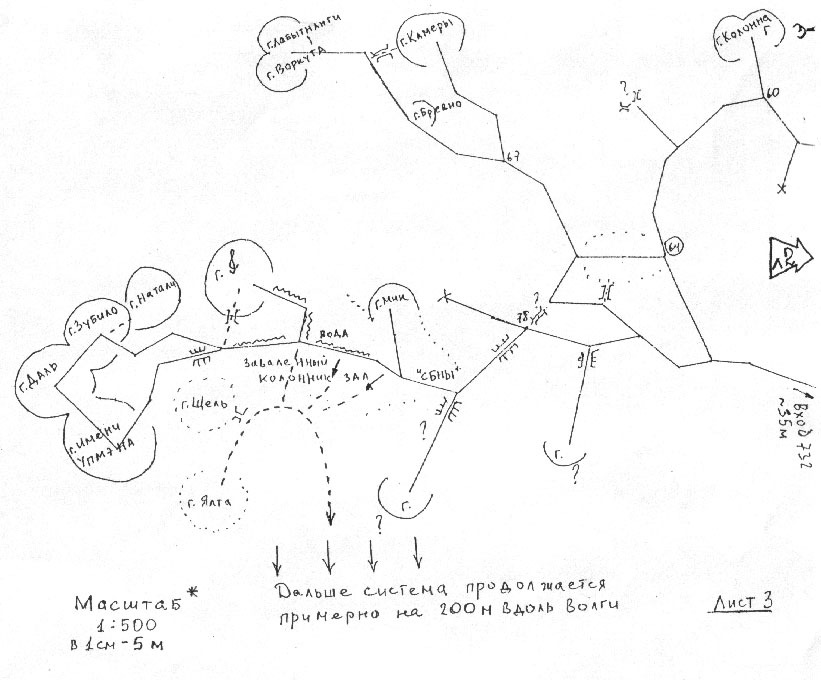 г.Лабытнанги
г. Воркута
г. Камеры
г. Колонна
г
З
?
60
г. Бревно
67
64
г. Натали
г. Зубило
г. Даль
г. Имени
УПМЭНА
г.
вода
г. Мик
?
78
Заваленный
колонник зал
"СБНЫ"
г. Щель
г. Ялта
?
г.
?
г.
?
Вход 732
~35м
Дальше система продолжается
примерно на 200м вдоль Волги
Масштаб*
1:500
в 1см-5м
Лист 3